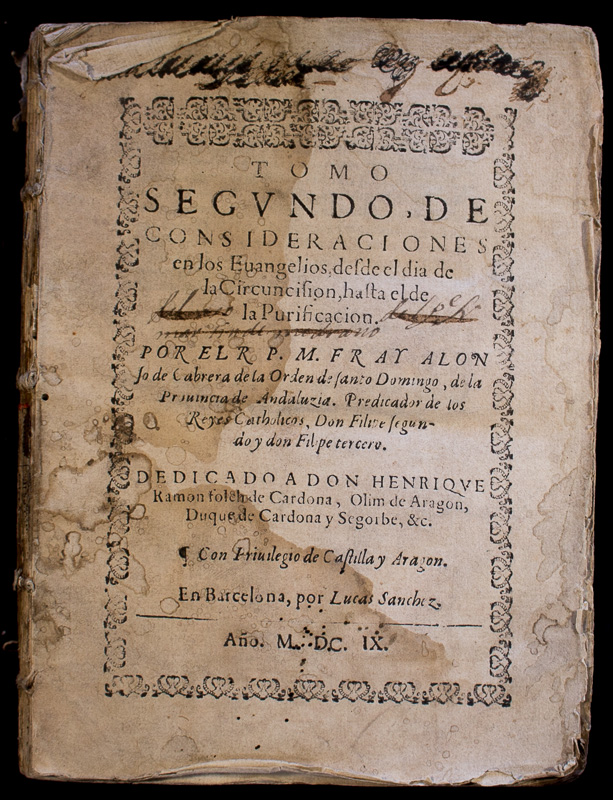 TOMO
SEGVNDO, DE
CONSIDERACIONES
en los Euangelios, desde el dia de
la Circuncision, hasta el de
la Purificacion.
POR EL R. P. M. FRAY ALON
so de Cabrera de la Orden de santo Domingo, de la
Prouincia de Andaluzia. Predicador de los
Reyes Catholicos, Don Filipe segun-
do y don Filipe tercero.
DEDICADO A DON HENRIQVE
Ramon folch de Cardona, Olim de Aragon,
Duque de Cardona y Segorbe, &c.
¶ Con Priuilegio de Castilla y Aragon.
En Barcelona, por Lucas Sanchez.
Año. M. DC. IX.